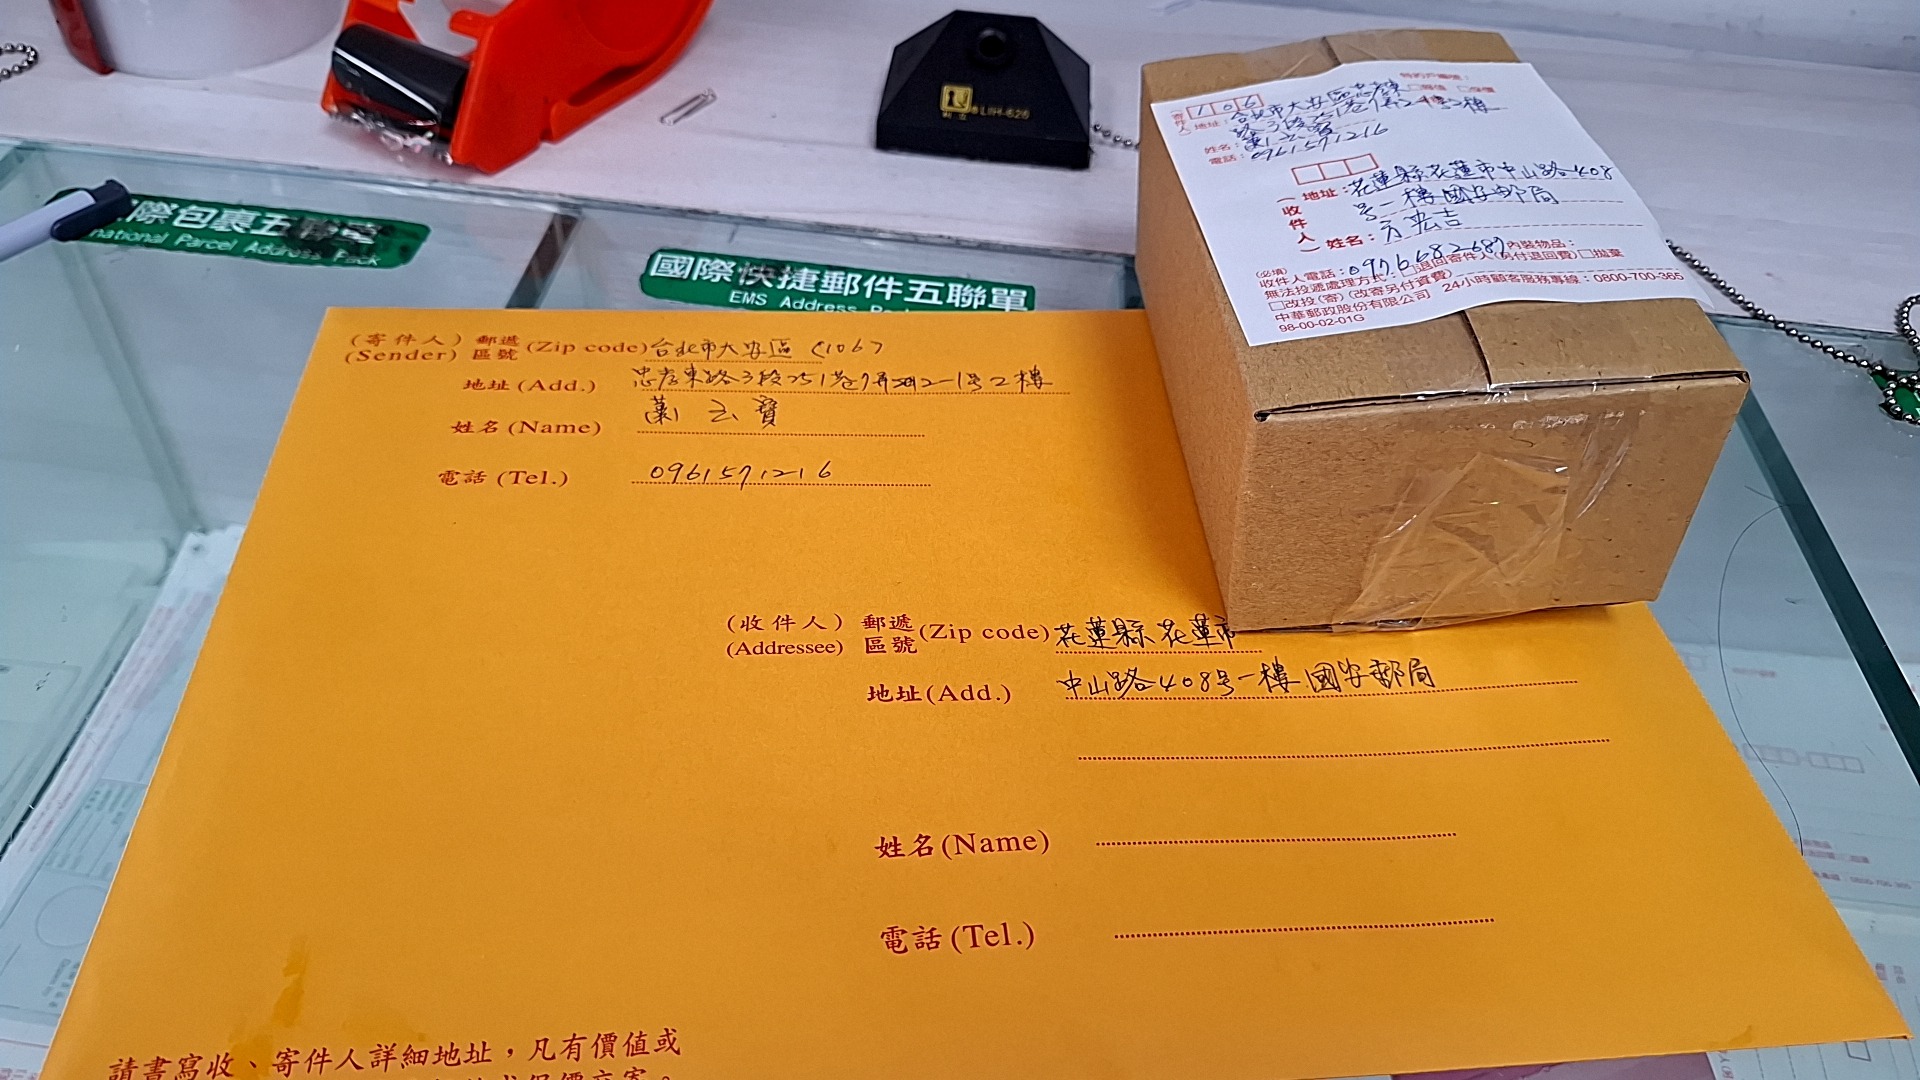 LIH-626
際包裹五聯單
national Parcel Address Pack
國際快捷郵件五聯單
EMS Address
特約戶編號：
寄件人 106
地址：台北市大安區忠孝東
路3段251巷
姓名：
電話：0961571216
收件人
地址：花蓮縣花蓮市中山路408
号一樓國安郵局
姓名：方宏吉
內裝物品：
(必填)
收件人電話：
無法投遞處理方式：□退回寄件人(另付退回費)□拋棄
□改投(寄)(改寄另付資費) 24小時顧客服務專線：0800-700-365
中華郵政股份有限公司
98-00-02-01G
(寄件人) 郵遞區號 (Zip code) 台北市大安區 (106)
(Sender)
地址 (Add.) 忠孝東路3段251巷7弄2-1号2樓
姓名 (Name) 玉寶
電話 (Tel.) 0961571216
(收件人) 郵遞區號 (Zip code) 花蓮縣花蓮市
(Addressee)
地址 (Add.) 中山路408号一樓國安郵局
姓名 (Name)
電話 (Tel.)
請書寫收、寄件人詳細地址，凡有價值或